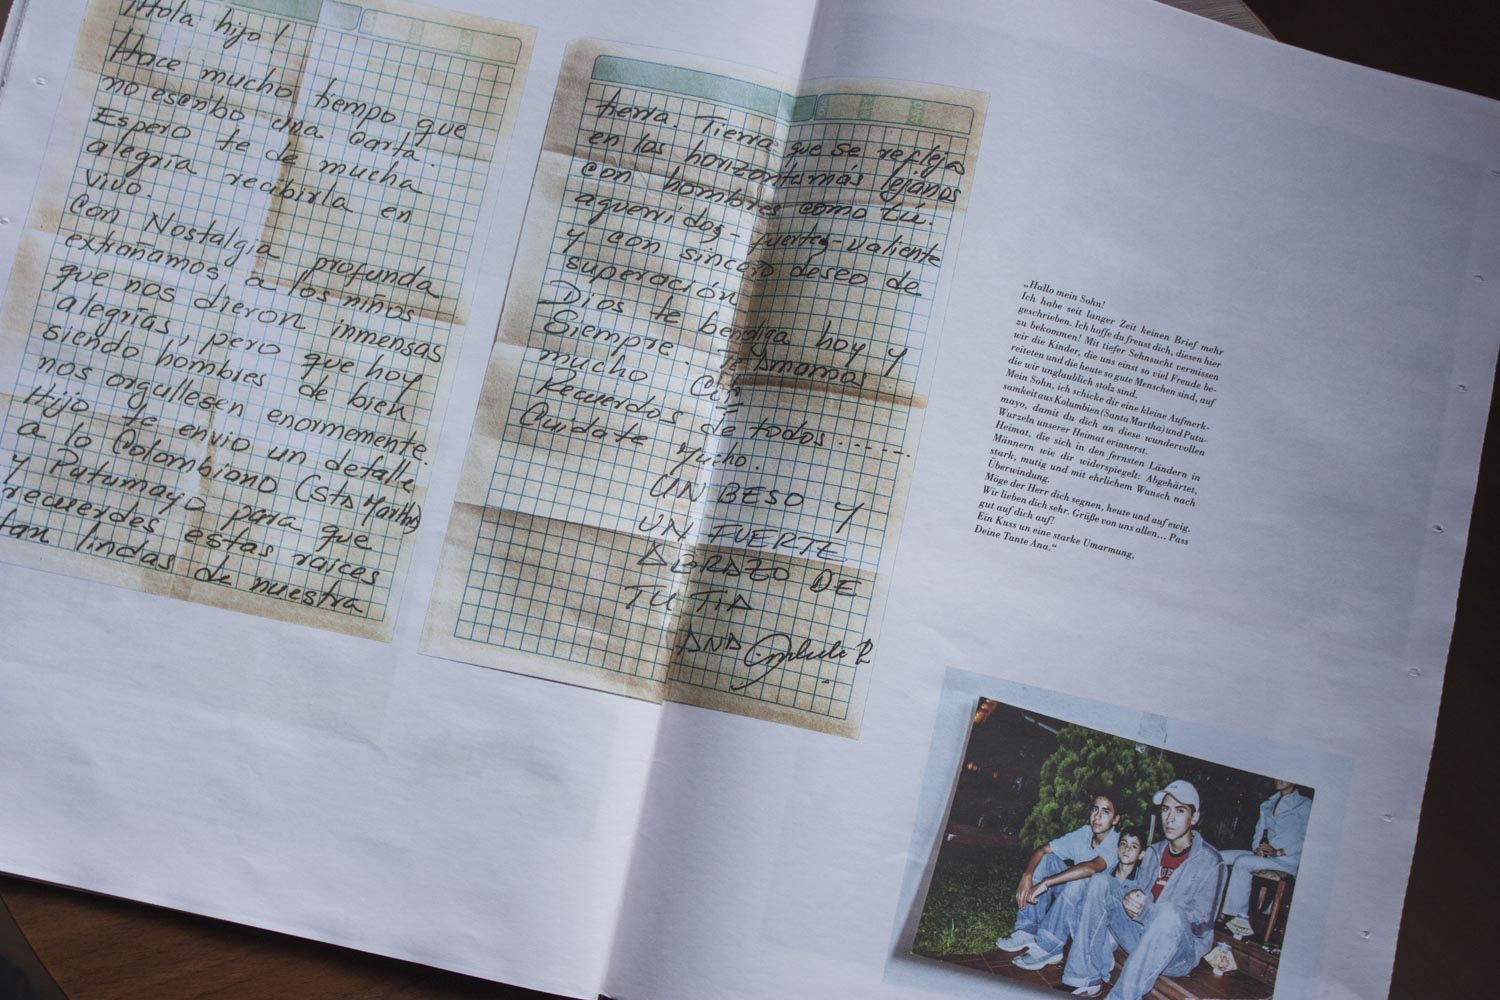 ¡Hola hijo!
Hace mucho tiempo que
no escribo una carta.
Espero te de mucha
alegria recibirla en
vivo.
Con Nostalgia profunda
extrañamos a los niños
que nos dieron inmensas
alegrias, pero que hoy
siendo hombres de bien
nos orgullesen enormemente.
Hijo te envio un detalle
a lo Colombiano (Sta Martha)
y Putumayo para que
recuerdes estas raices
tan lindas de nuestra
tierra. Tierra que se refleja
en los horizontes mas lejanos
con hombres como tú.
aguerridos- fuertes- valiente
y con sincero deseo de
superación
Dios te bendiga hoy y
Siempre. Amamos
mucho
Recuerdos de todos......
Cuidate mucho.
UN BESO Y
UN FUERTE
ABRAZO DE
TU TIA
ANA
„Hallo mein Sohn!
Ich habe seit langer Zeit keinen Brief mehr
geschrieben. Ich hoffe du freust dich, diesen hier
zu bekommen! Mit tiefer Sehnsucht vermissen
wir die Kinder, die uns einst so viel Freude be-
reiteten und die heute so gute Menschen sind, auf
die wir unglaublich stolz sind.
Mein Sohn, ich schicke dir eine kleine Aufmerk-
samkeit aus Kolumbien (Santa Martha) und Putu-
mayo, damit du dich an diese wundervollen
Wurzeln unserer Heimat erinnerst.
Heimat, die sich in den fernsten Ländern in
Männern wie dir widerspiegelt: Abgehärtet,
stark, mutig und mit ehrlichem Wunsch nach
Überwindung.
Möge der Herr dich segnen, heute und auf ewig.
Wir lieben dich sehr. Grüße von uns allen... Pass
gut auf dich auf!
Ein Kuss un eine starke Umarmung,
Deine Tante Ana.“